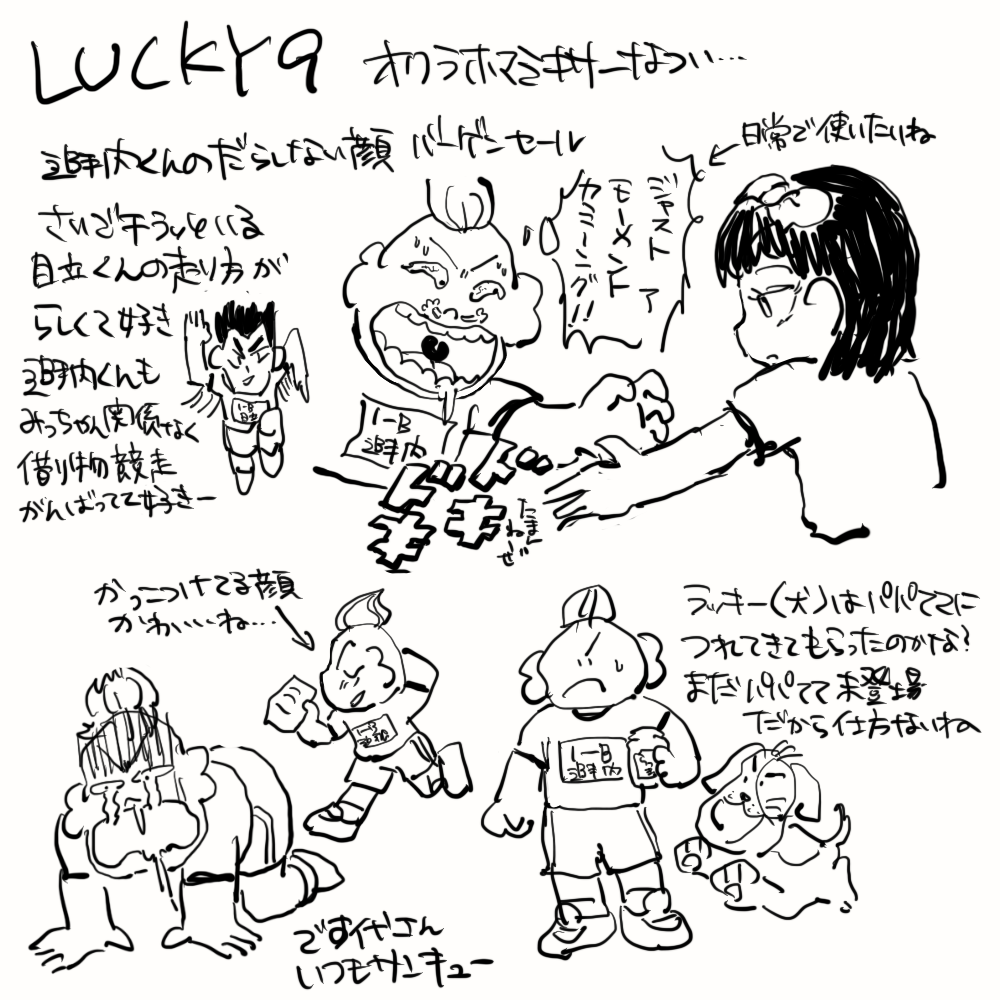 LUCKY9
オクラホマミキサーなつい…
追手内くんのだらしない顔 バーゲンセール
日常で使いたいね
ジャスト ア
モーメント
カミーング!!
さいご走っている
自立くんの走り方が
らしくて好き
追手内くんも
みっちゃん関係なく
借り物競走
がんばってて好きー
1-B
追手内
ドキ
ドキ
たまんねーぜ
かっこつけてる顔
かわいいね…
ラッキー(犬)はパパてて に
つれてきてもらったのかな?
まだパパてて未登場
だから仕方ないねの
1-B
1-B
追手内
です代さん
いつもサンキュー